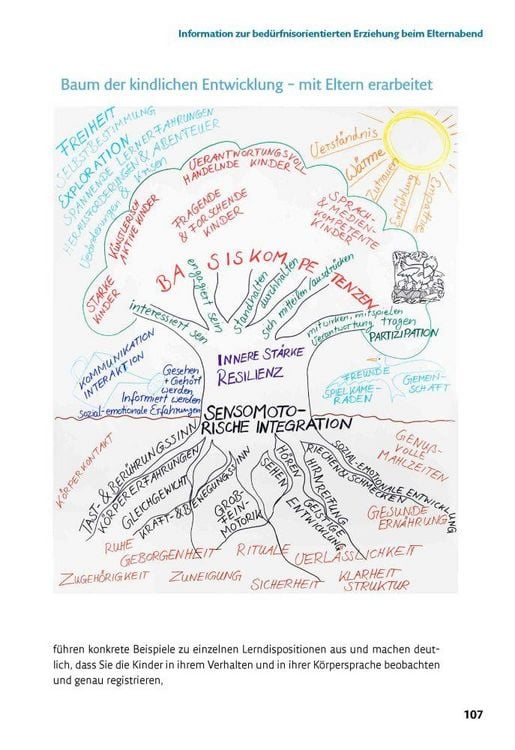 Information zur bedürfnisorientierten Erziehung beim Elternabend
Baum der kindlichen Entwicklung – mit Eltern erarbeitet
FREIHEIT
SELBSTBESTIMMUNG
EXPLORATION
SPANNENDE LERNERFAHRUNGEN
HERAUSFORDERUNGEN & ABENTEUER
Veränderungen & Krisen
Verständnis
Wärme
Zutrauen
Einfühlung
Empathie
VERANTWORTUNGSVOLL
HANDELNDE KINDER
KÜNSTLERISCH
AKTIVE KINDER
FRAGENDE
& FORSCHENDE
KINDER
SPRACH-
& MEDIEN-
KOMPETENTE
KINDER
STARKE
KINDER
BASISKOMPETENZEN
interessiert sein
engagiert sein
standhalten
durchhalten
sich mitteilen/ausdrücken
mitwirken, mitspielen
Verantwortung tragen
PARTIZIPATION
KOMMUNIKATION
INTERAKTION
Gesehen
+ Gehört
werden
Informiert werden
sozial-emotionale Erfahrungen
INNERE STÄRKE
RESILIENZ
FREUNDE
SPIELKAME-
RADEN
GEMEIN-
SCHAFT
SENSOMOTO-
RISCHE INTEGRATION
KÖRPERKONTAKT
TAST- & BERÜHRUNGSSINN
KÖRPERERFAHRUNGEN
GLEICHGEWICHT
KRAFT- & BEWEGUNGSSINN
GROß-
FEIN-
MOTORIK
SEHEN
HÖREN
HIRNREIFUNG
GEISTIGE
ENTWICKLUNG
RIECHEN & SCHMECKEN
SOZIAL-EMOTIONALE ENTWICKLUNG
GENUß-
VOLLE
MAHLZEITEN
GESUNDE
ERNÄHRUNG
RUHE
GEBORGENHEIT
RITUALE
VERLÄSSLICHKEIT
ZUGEHÖRIGKEIT
ZUNEIGUNG
SICHERHEIT
KLARHEIT
STRUKTUR
führen konkrete Beispiele zu einzelnen Lerndispositionen aus und machen deut-
lich, dass Sie die Kinder in ihrem Verhalten und in ihrer Körpersprache beobachten
und genau registrieren,
107